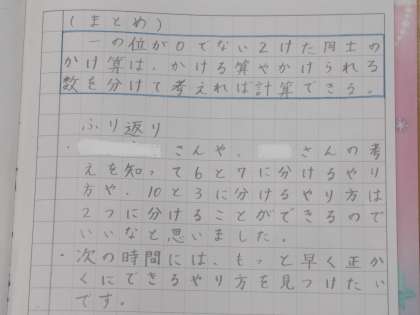 (まとめ)
一の位が0でない2けた同士の
かけ算は、かける算やかけられる
数を分けて考えれば計算できる。
ふり返り
・ さんや、 さんの考
えを知って6と7に分けるやり
方や、10と3に分けるやり方は
2つに分けることができるので
いいなと思いました。
・次の時間には、もっと早く正か
くにできるやり方を見つけたい
です。